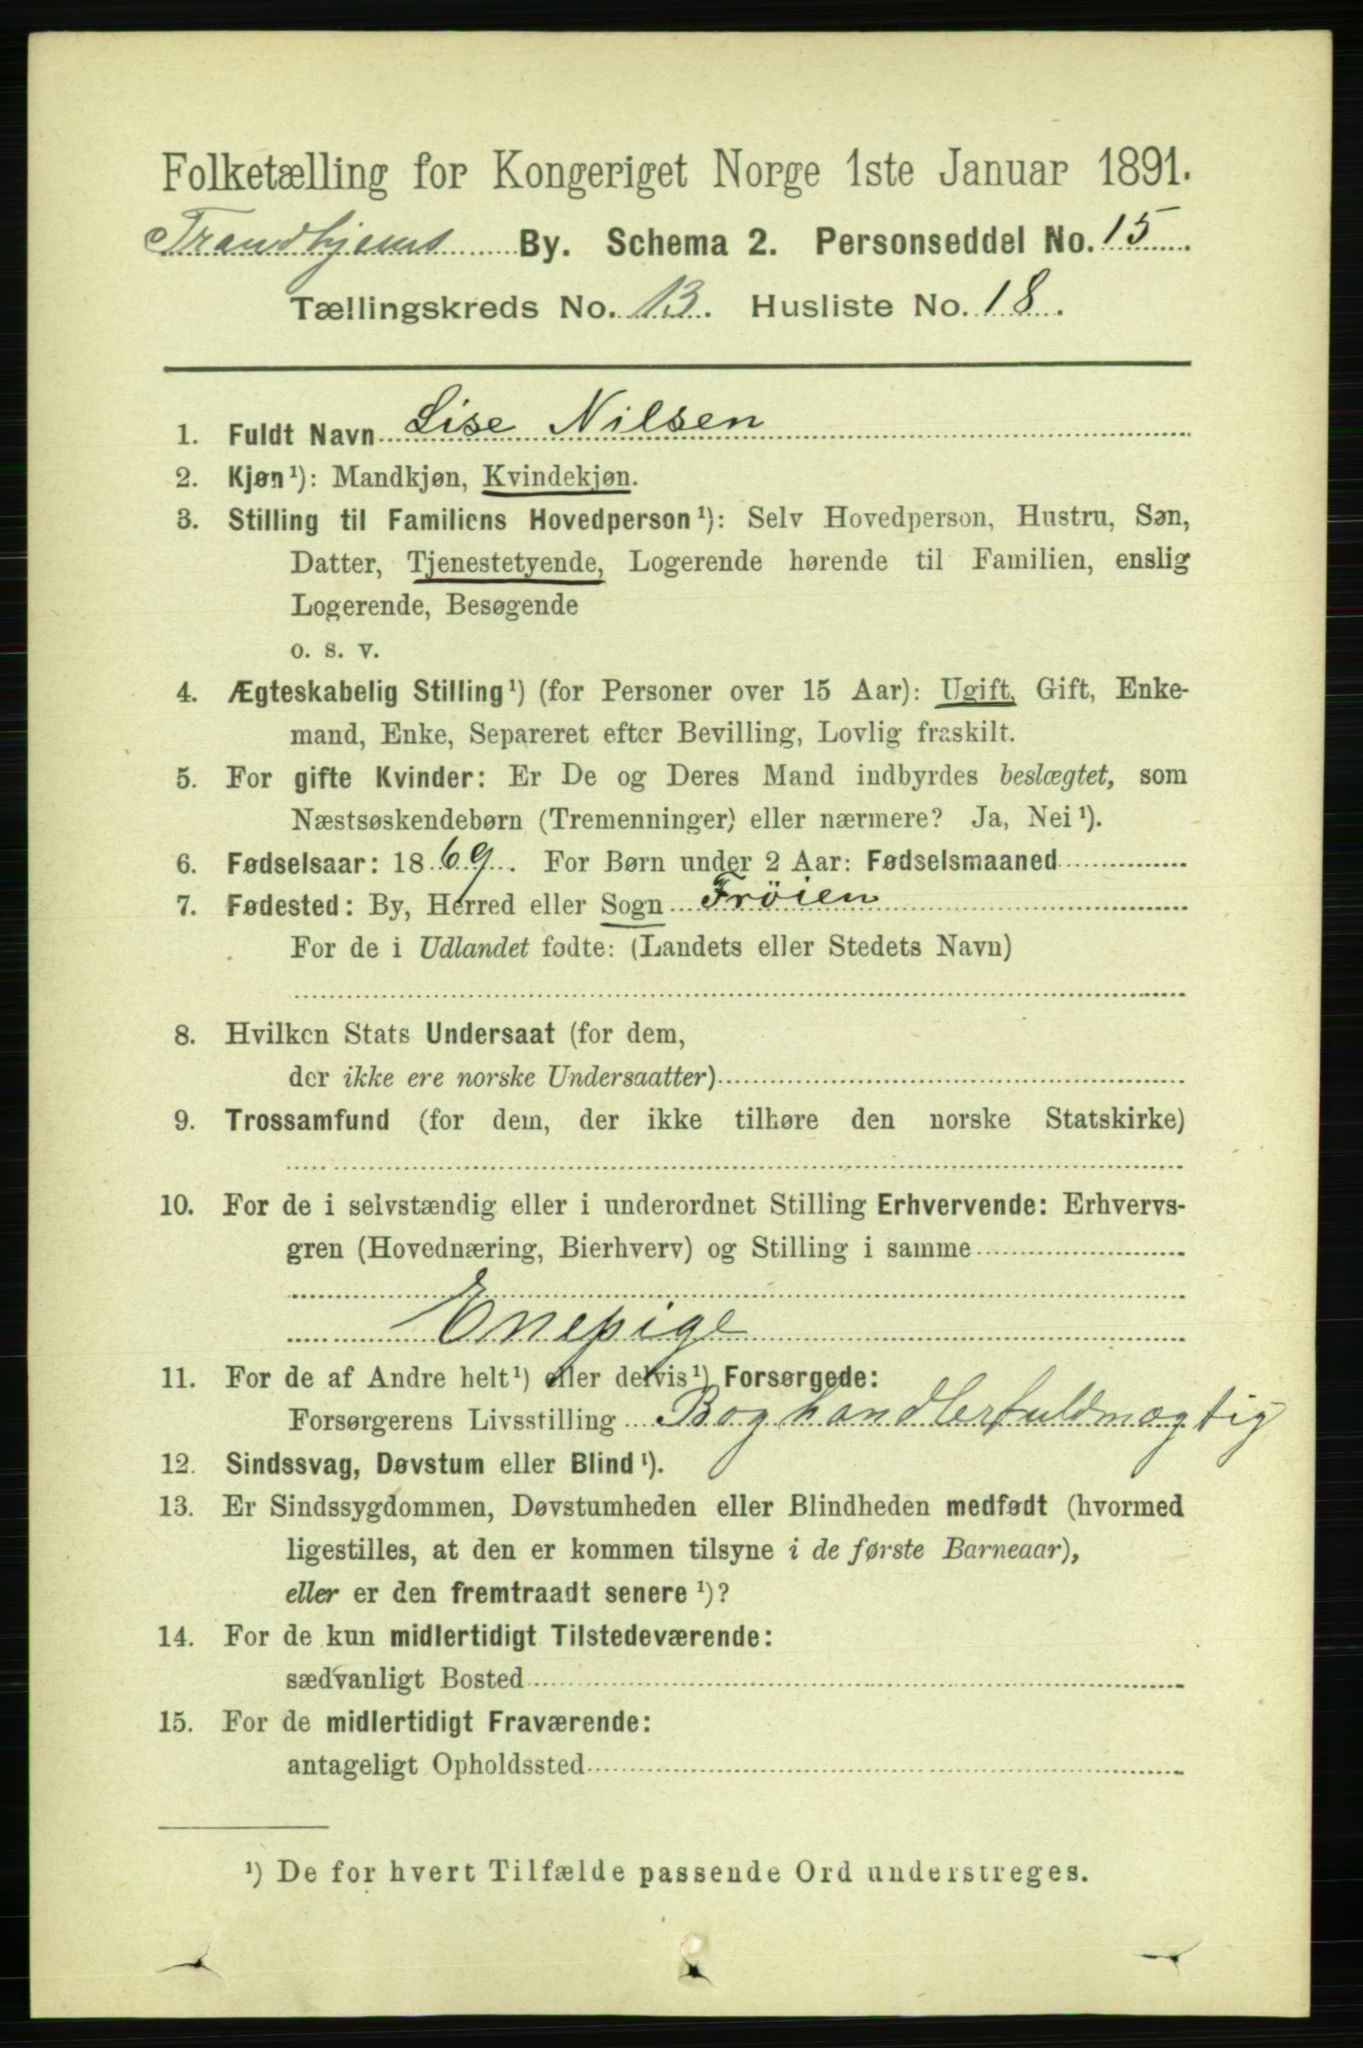 Folketælling for Kongeriget Norge 1ste Januar 1891.
Trondhjems By. Schema 2. Personseddel No. 15.
Tællingskreds No. 13. Husliste No. 18.
1. Fuldt Navn Lise Nilsen
2. Kjøn¹): Mandkjøn, Kvindekjøn.
3. Stilling til Familiens Hovedperson¹): Selv Hovedperson, Hustru, Søn,
Datter, Tjenestetyende, Logerende hørende til Familien, enslig
Logerende, Besøgende
o. s. v.
4. Ægteskabelig Stilling¹) (for Personer over 15 Aar): Ugift, Gift, Enke-
mand, Enke, Separeret efter Bevilling, Lovlig fraskilt.
5. For gifte Kvinder: Er De og Deres Mand indbyrdes beslægtet, som
Næstsøskendebørn (Tremenninger) eller nærmere? Ja, Nei¹).
6. Fødselsaar: 1869. For Børn under 2 Aar: Fødselsmaaned
7. Fødested: By, Herred eller Sogn Fröien
For de i Udlandet fødte: (Landets eller Stedets Navn)
8. Hvilken Stats Undersaat (for dem,
der ikke ere norske Undersaatter)
9. Trossamfund (for dem, der ikke tilhøre den norske Statskirke)
10. For de i selvstændig eller i underordnet Stilling Erhvervende: Erhvervs-
gren (Hovednæring, Bierhverv) og Stilling i samme
Enepige
11. For de af Andre helt¹) eller delvis¹) Forsørgede:
Forsørgerens Livsstilling Boghandlerfuldmægtig
12. Sindssvag, Døvstum eller Blind¹).
13. Er Sindssygdommen, Døvstumheden eller Blindheden medfødt (hvormed
ligestilles, at den er kommen tilsyne i de første Barneaar),
eller er den fremtraadt senere¹)?
14. For de kun midlertidigt Tilstedeværende:
sædvanligt Bosted
15. For de midlertidigt Fraværende:
antageligt Opholdssted
¹) De for hvert Tilfælde passende Ord understreges.